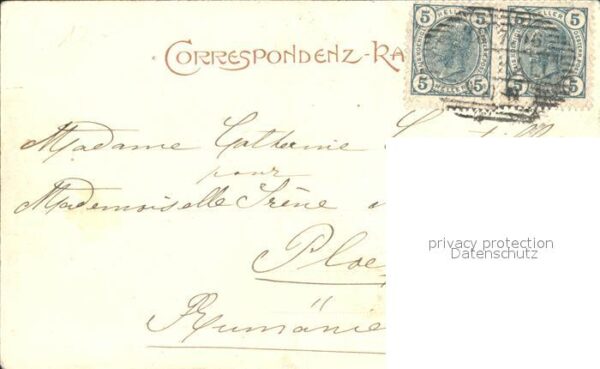 CORRESPONDENZ-
5 HELLER 5
5 HELLER 5
Madame Catherine
pour
Mademoiselle Irène
privacy protection
Datenschutz
Rumänie